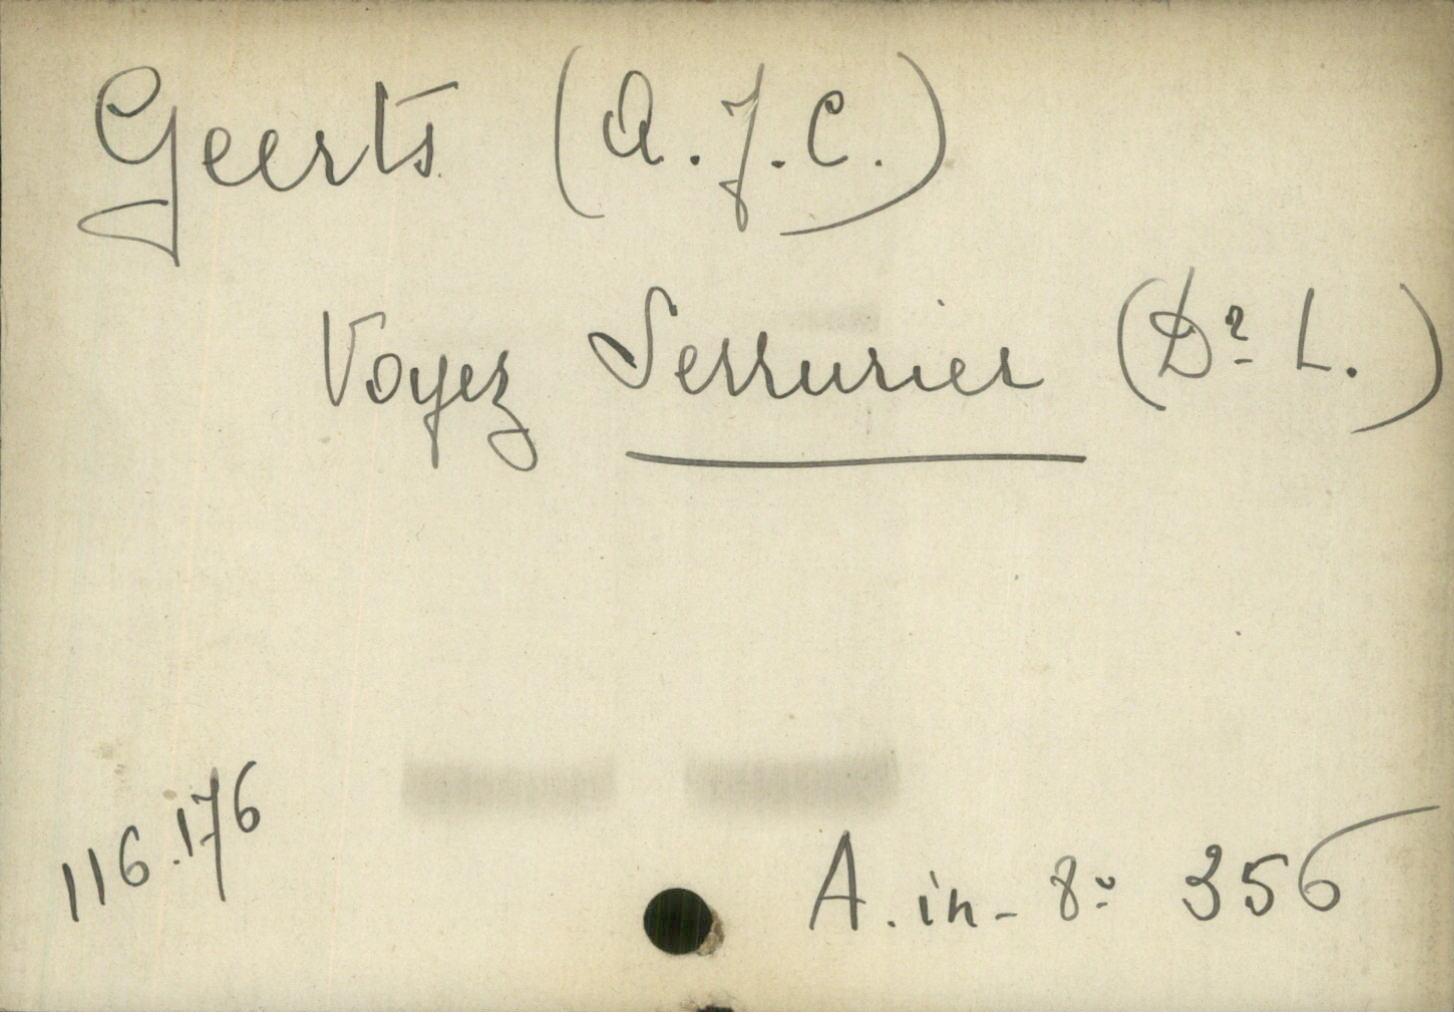 Geerts (A.J.C.)
Voyez Serrurier (Dr L.)
116.176
A. in-8º 356